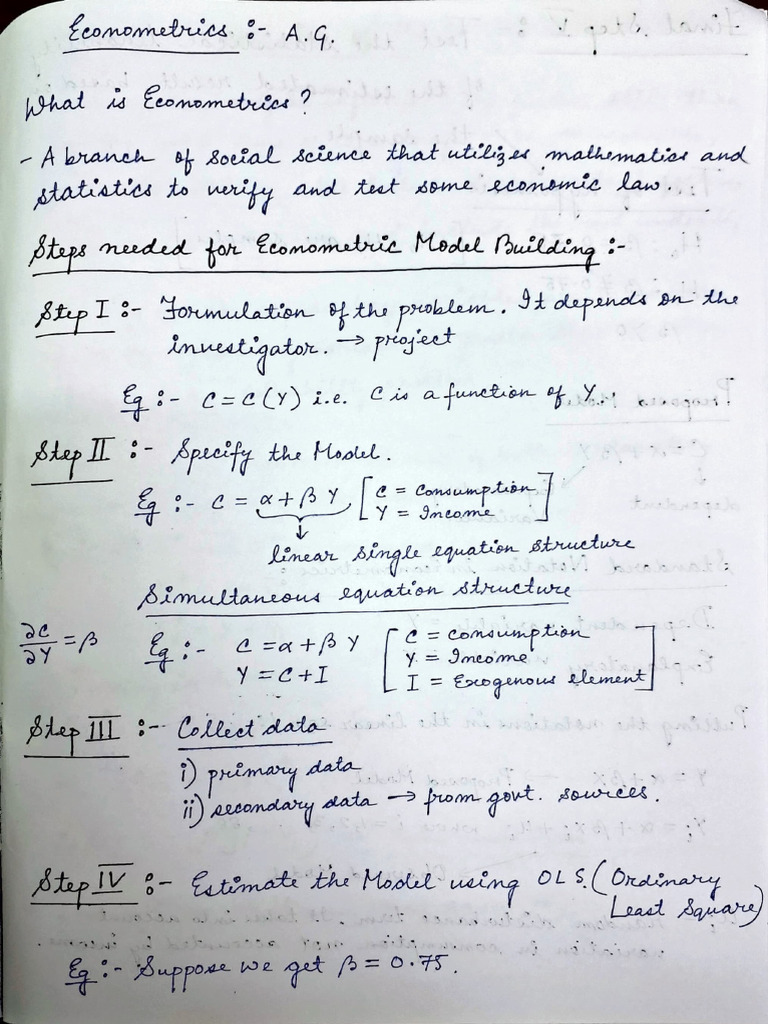 Econometrics :- A.G.
What is Econometrics?
- A branch of social science that utilizes mathematics and
statistics to verify and test some economic law.
Steps needed for Econometric Model Building :-
Step I :- Formulation of the problem. It depends on the
investigator. → project
Eg :- C = C(Y) i.e. C is a function of Y.
Step II :- Specify the Model.
Eg :- C = α + β Y [C = Consumption
Y = Income]
↓
linear single equation structure
Simultaneous equation structure
∂C/∂Y = β Eg :- C = α + β Y [C = consumption
Y = C + I Y = Income
I = Exogenous element]
Step III :- Collect data
i) primary data
ii) secondary data → from govt. sources.
Step IV :- Estimate the Model using OLS. (Ordinary
Least Square)
Eg :- Suppose we get β = 0.75.